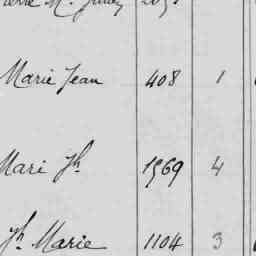 Marie Jean 408 1
Mari Jh 1569 4
Jh Marie 1104 3